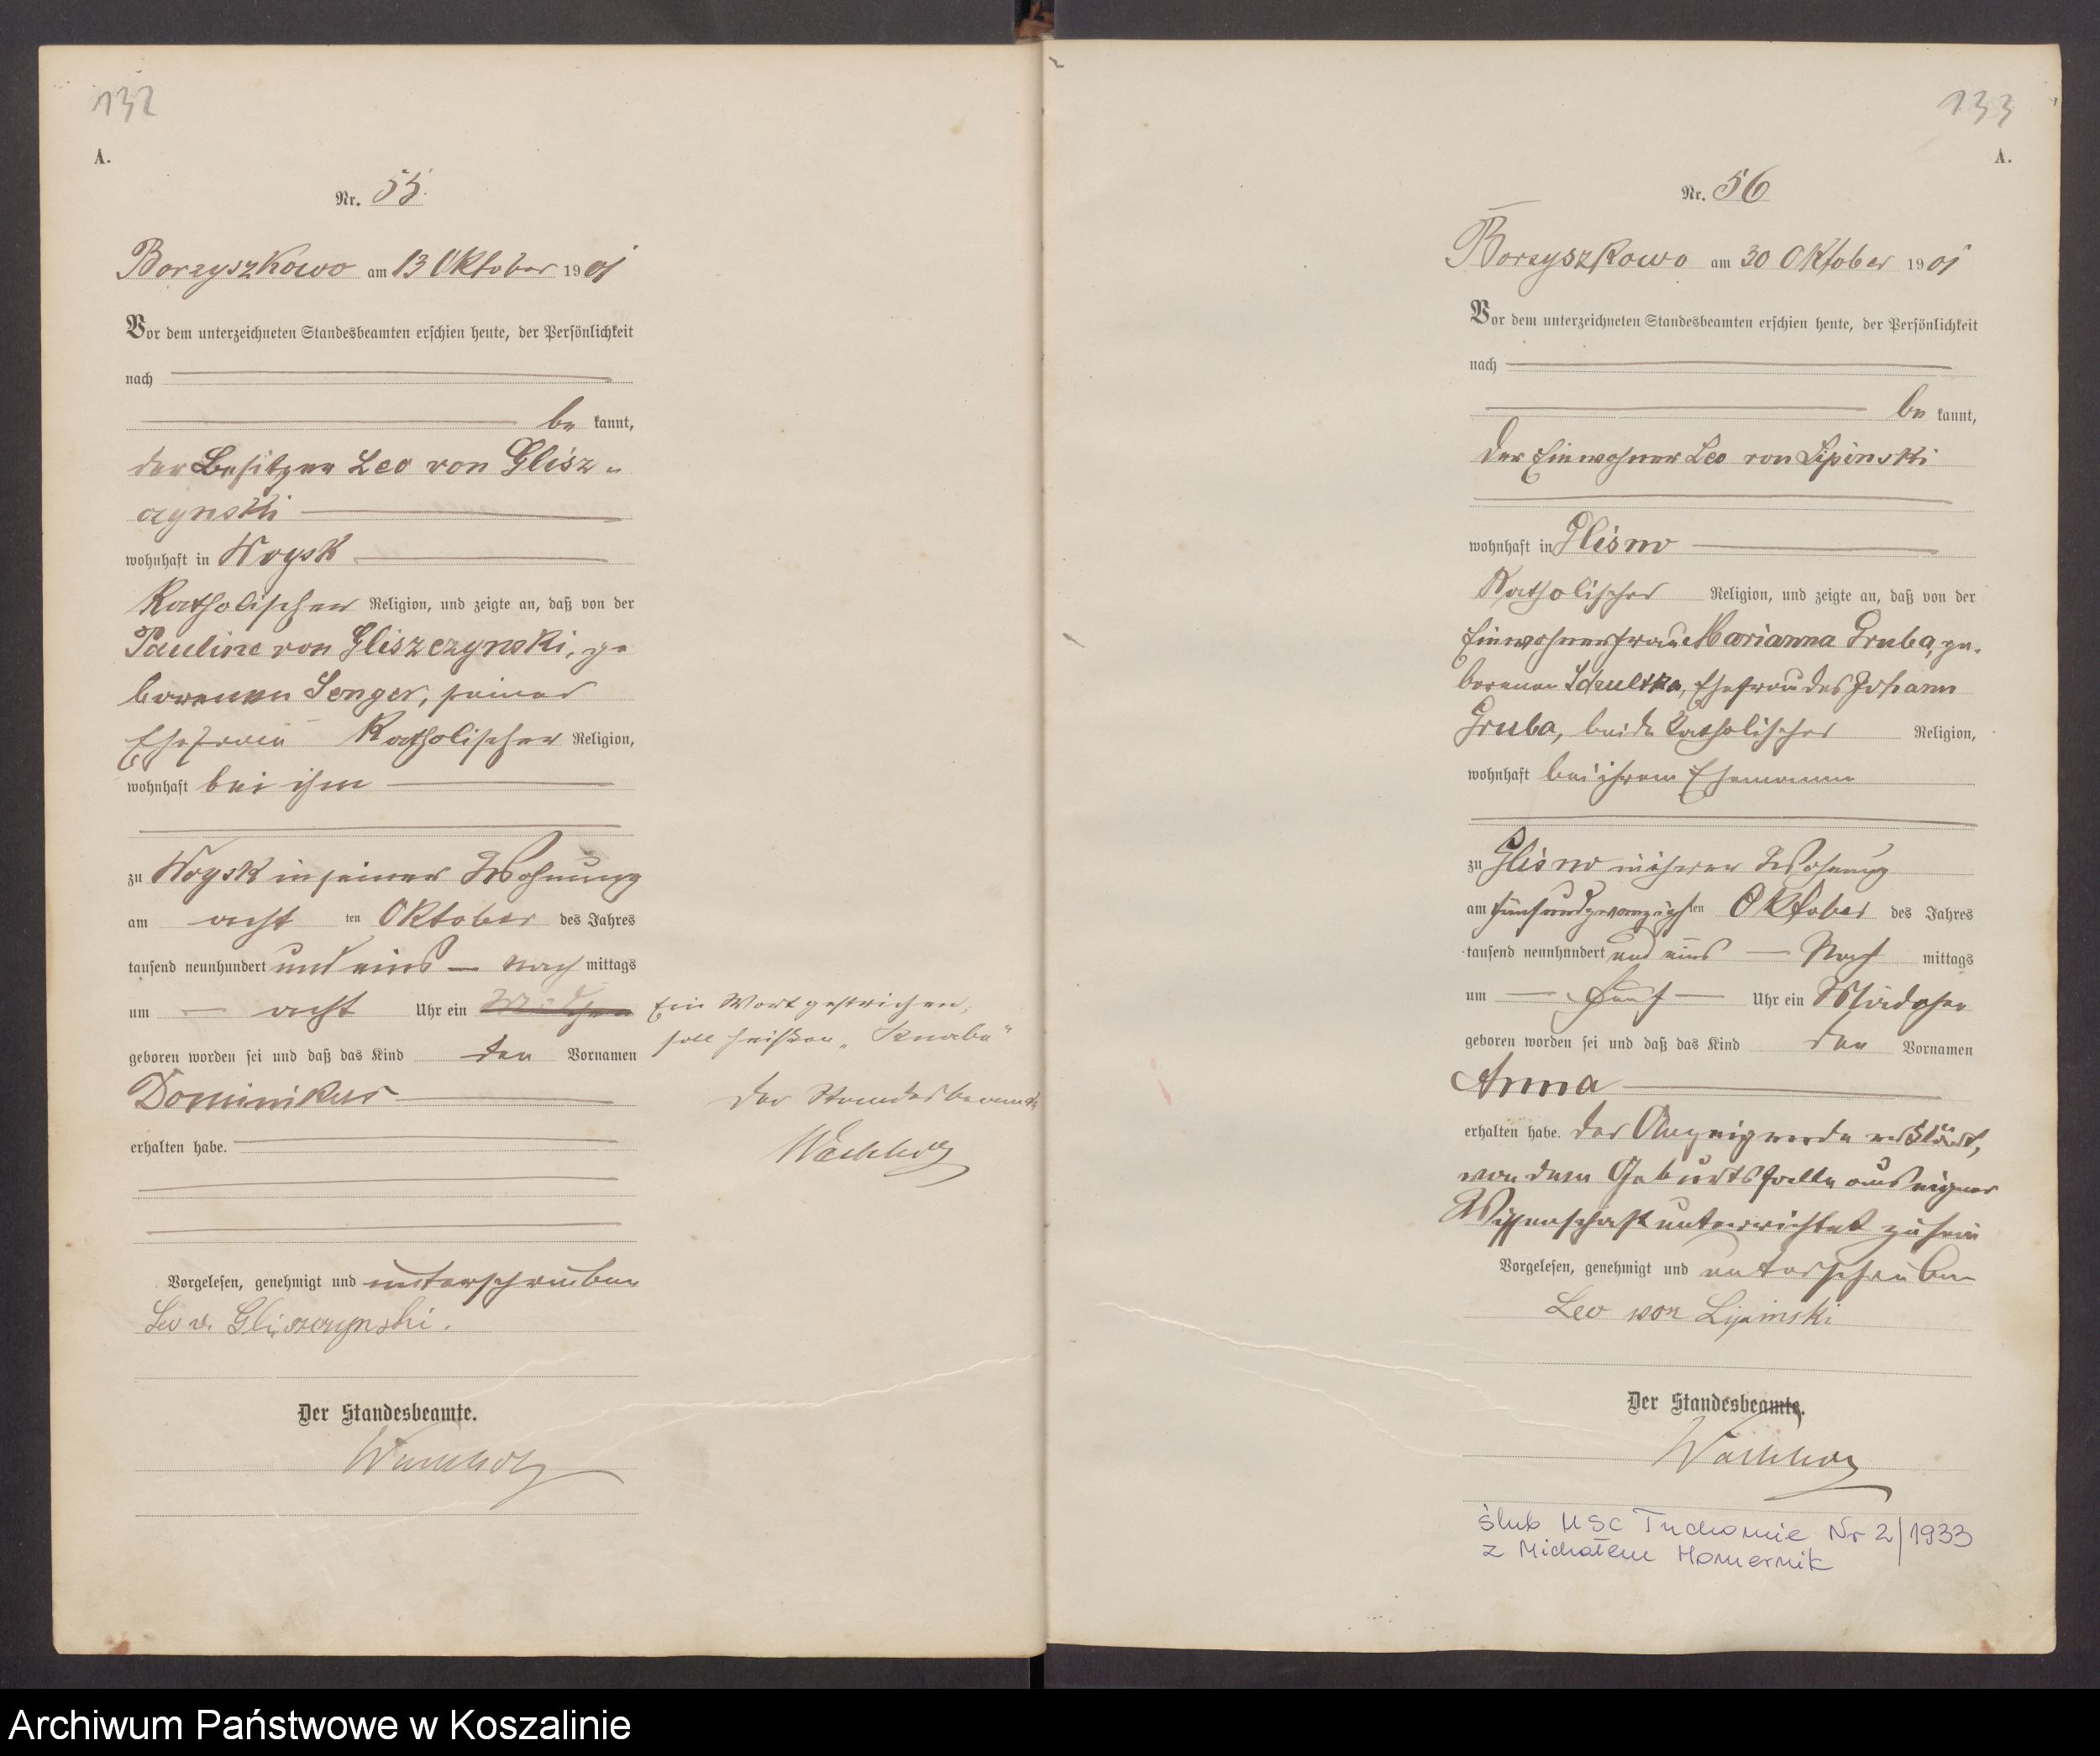 132
A.
Nr. 55.
Borzyszkowo am 13 Oktober 1901
Vor dem unterzeichneten Standesbeamten erschien heute, der Persönlichkeit
nach
be kannt,
der Besitzer Leo von Glisz-
czynski
wohnhaft in Woysk
Katholischer Religion, und zeigte an, daß von der
Pauline von Gliszczynski, ge
borenen Senger, seiner
Ehefrau Katholischer Religion,
wohnhaft bei ihm
zu Woysk in seiner Wohnung
am acht ten Oktober des Jahres
tausend neunhundert und eins nach mittags
um acht Uhr ein Mädchen
geboren worden sei und daß das Kind den Vornamen
Dominikus
erhalten habe.
Ein Wort gestrichen,
soll heißen „Knabe“
Der Standesbeamte
Wachholz
Vorgelesen, genehmigt und unterschrieben
Leo v. Gliszczynski.
Der Standesbeamte.
Wachholz
133
A.
Nr. 56
Borzyszkowo am 30 Oktober 1901
Vor dem unterzeichneten Standesbeamten erschien heute, der Persönlichkeit
nach
be kannt,
der Einwohner Leo von Lipinski
wohnhaft in Glisno
Katholischer Religion, und zeigte an, daß von der
Einwohnerfrau Marianna Gruba, ge-
borenen, Ehefrau des Johann
Gruba, beide katholischer Religion,
wohnhaft bei ihrem Ehemanne
zu Glisno in ihrer Wohnung
am fünfundzwanzigsten Oktober des Jahres
tausend neunhundert und eins Nach mittags
um fünf Uhr ein Mädchen
geboren worden sei und daß das Kind den Vornamen
Anna
erhalten habe. Der Anzeigende erklärt,
von dem Geburtsfalle aus eigner
Wissenschaft unterrichtet zu sein
Vorgelesen, genehmigt und unterschrieben
Leo von Lipinski
Der Standesbeamte.
Wachholz
ślub USC Tuchomie Nr 2/1933
z Michałem Homernik
Archiwum Państwowe w Koszalinie